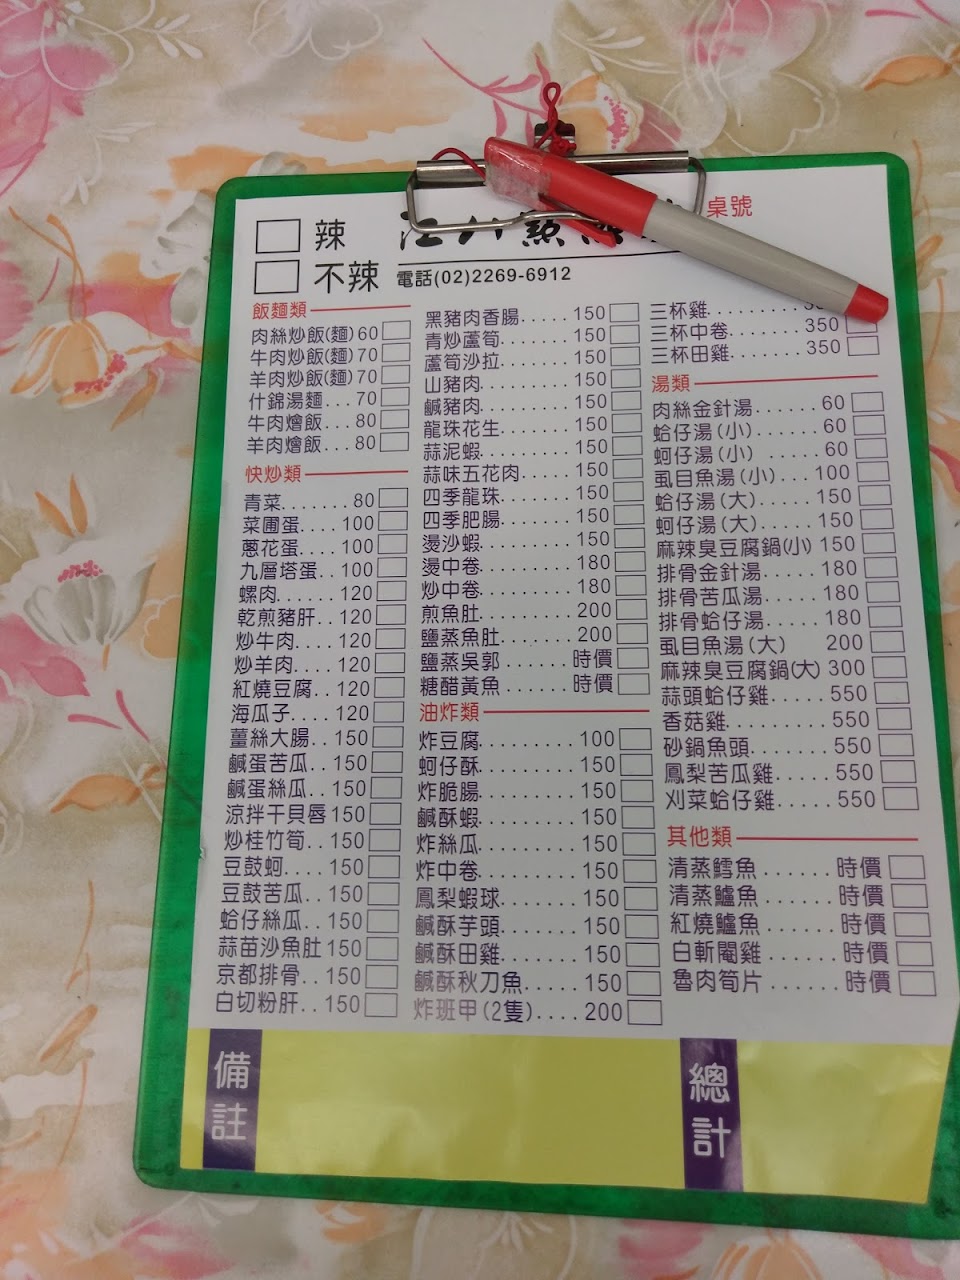 辣
不辣
江川
桌號
電話(02)2269-6912
飯麵類
肉絲炒飯(麵)60
牛肉炒飯(麵)70
羊肉炒飯(麵)70
什錦湯麵...70
牛肉燴飯...80
羊肉燴飯...80
快炒類
青菜.......80
菜圃蛋....100
蔥花蛋....100
九層塔蛋..100
螺肉......120
乾煎豬肝..120
炒牛肉....120
炒羊肉....120
紅燒豆腐..120
海瓜子....120
薑絲大腸..150
鹹蛋苦瓜..150
鹹蛋絲瓜..150
涼拌干貝唇150
炒桂竹筍..150
豆鼓蚵....150
豆鼓苦瓜..150
蛤仔絲瓜..150
蒜苗沙魚肚150
京都排骨..150
白切粉肝..150
黑豬肉香腸.....150
青炒蘆筍.......150
蘆筍沙拉.......150
山豬肉.........150
鹹豬肉.........150
龍珠花生.......150
蒜泥蝦.........150
蒜味五花肉.....150
四季龍珠.......150
四季肥腸.......150
燙沙蝦.........150
燙中卷.........180
炒中卷.........180
煎魚肚.........200
鹽蒸魚肚.......200
鹽蒸吳郭......時價
糖醋黃魚......時價
油炸類
炸豆腐.........100
蚵仔酥.........150
炸脆腸.........150
鹹酥蝦.........150
炸絲瓜.........150
炸中卷.........150
鳳梨蝦球.......150
鹹酥芋頭.......150
鹹酥田雞.......150
鹹酥秋刀魚.....150
炸班甲(2隻)....200
三杯雞.........
三杯中卷.......350
三杯田雞.......350
湯類
肉絲金針湯......60
蛤仔湯(小)......60
蚵仔湯(小) ......60
虱目魚湯(小)...100
蛤仔湯(大).....150
蚵仔湯(大).....150
麻辣臭豆腐鍋(小) 150
排骨金針湯.....180
排骨苦瓜湯.....180
排骨蛤仔湯.....180
虱目魚湯(大) 200
麻辣臭豆腐鍋(大) 300
蒜頭蛤仔雞.....550
香菇雞.........550
砂鍋魚頭.......550
鳳梨苦瓜雞.....550
刈菜蛤仔雞.....550
其他類
清蒸鱈魚......時價
清蒸鱸魚......時價
紅燒鱸魚......時價
白斬閹雞......時價
魯肉筍片......時價
備註
總計